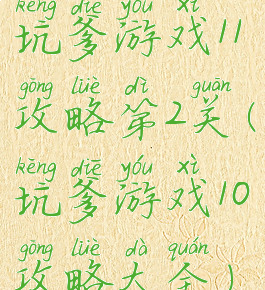 kēng diē yóu xì
坑爹游戏11
gōng lüè dì guān
攻略第2关（
kēng diē yóu xì
坑爹游戏10
gōng lüè dà quán
攻略大全）